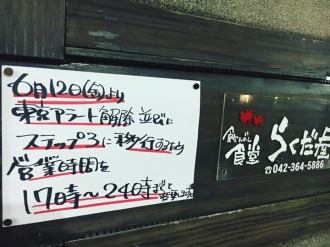 6月12日(金)より
東京アラート解除並びに
ステップ3に移行するため
営業時間を
17時〜24時までと
食堂
らくだ
☎042-364-5886